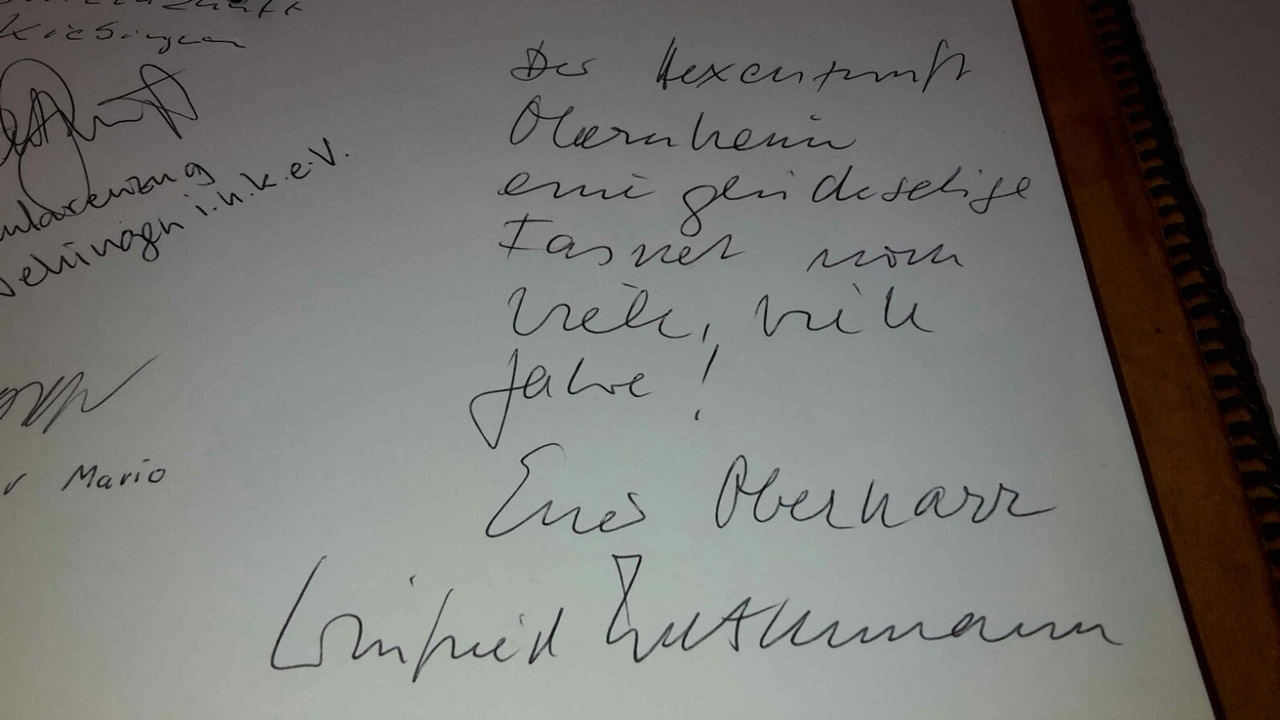 Kiesingen
i.n.k.e.V.
Mario
Der Hexenzunft
Obernheim
eine glückselige
Fasnet noch
viele, viele
Jahre!
Euer Obernarr
Winfried Kretschmann